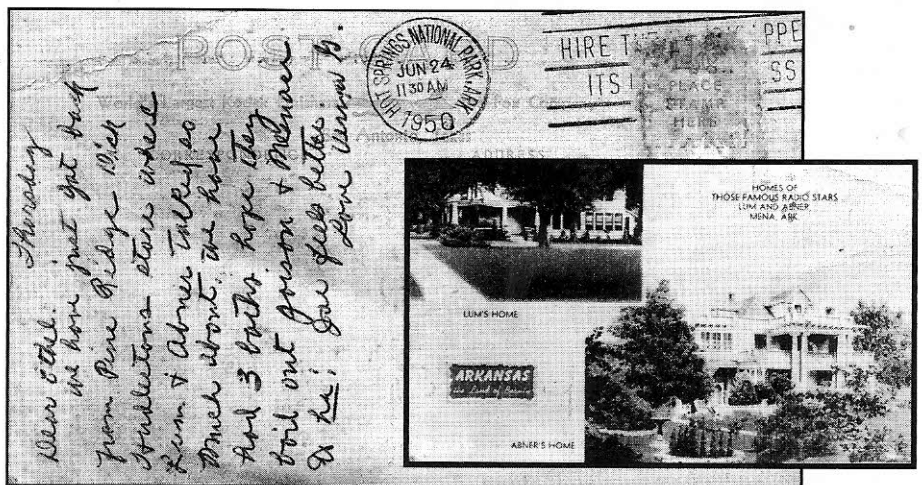 POST CARD
HOT SPRINGS NATIONAL PARK, ARK.
JUN 24
11 30 AM
1950
HIRE T PPE
ITS SS
PLACE
STAMP
HERE
ADDRESS
Thursday
Dear Ethel.
we have just got back
from Pine Ridge Dick
Huddletons store where
Lum & Abner talked so
much about. we have
had 3 baths. hope they
boil out poison &
Ha! Joe feels better
Love Verna G.
HOMES OF
THOSE FAMOUS RADIO STARS
LUM AND ABNER,
MENA, ARK.
LUM'S HOME
ARKANSAS
ABNER'S HOME